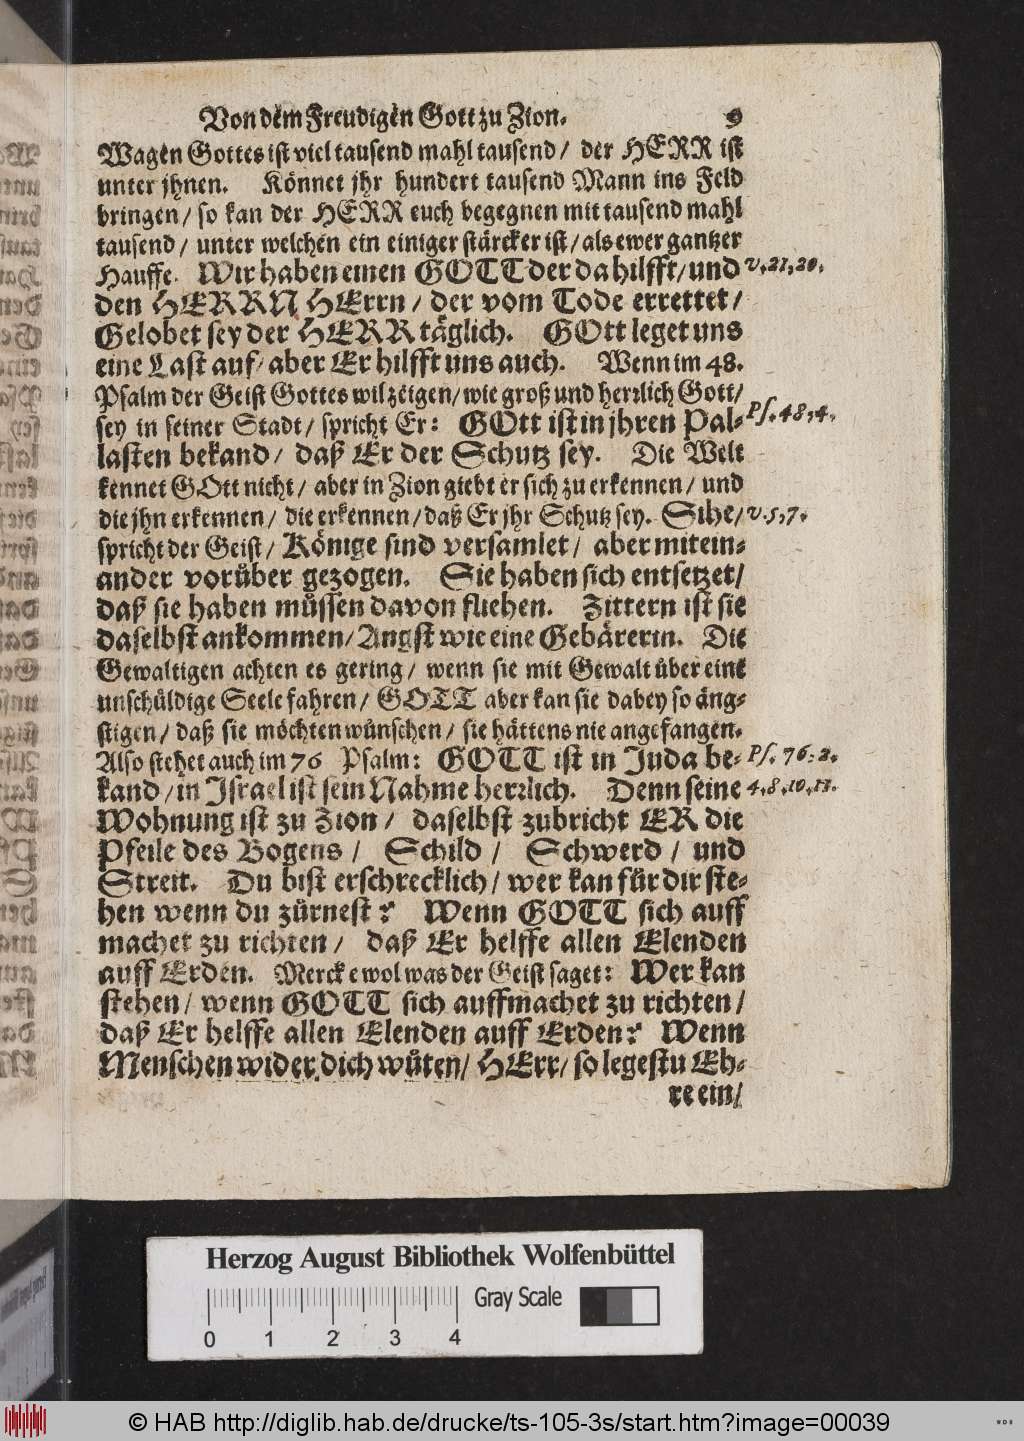 Von dem Freudigen Gott zu Zion. 9
Wagen Gottes ist viel tausend mahl tausend / der HERR ist
unter jhnen. Könnet jhr hundert tausend Mann ins Feld
bringen / so kan der HERR euch begegnen mit tausend mahl
tausend / unter welchen ein einiger stärcker ist / als ewer gantzer
Hauffe. Wir haben einen GOTT der da hilfft / und v. 21, 20.
den HERRN HErrn / der vom Tode errettet /
Gelobet sey der HERR täglich. GOtt leget uns
eine Last auf / aber Er hilfft uns auch. Wenn im 48.
Psalm der Geist Gottes wil zeigen / wie groß und herrlich Gott /
sey in seiner Stadt / spricht Er: GOtt ist in jhren Pal- Ps. 48, 4.
lasten bekand / daß Er der Schutz sey. Die Welt
kennet GOtt nicht / aber in Zion giebt er sich zu erkennen / und
die jhn erkennen / die erkennen / daß Er jhr Schutz sey. Sihe / v. 5, 7.
spricht der Geist / Könige sind versamlet / aber mitein-
ander vorüber gezogen. Sie haben sich entsetzet /
daß sie haben müssen davon fliehen. Zittern ist sie
daselbst ankommen / Angst wie eine Gebärerin. Die
Gewaltigen achten es gering / wenn sie mit Gewalt über eine
unschüldige Seele fahren / GOTT aber kan sie dabey so äng-
stigen / daß sie möchten wünschen / sie hättens nie angefangen.
Also stehet auch im 76 Psalm: GOTT ist in Juda be- Ps. 76. 2.
kand / in Israel ist sein Nahme herrlich. Denn seine 4, 8, 10, 11.
Wohnung ist zu Zion / daselbst zubricht ER die
Pfeile des Bogens / Schild / Schwerd / und
Streit. Du bist erschrecklich / wer kan für dir ste-
hen wenn du zürnest? Wenn GOTT sich auff
machet zu richten / daß Er helffe allen Elenden
auff Erden. Mercke wol was der Geist saget: Wer kan
stehen / wenn GOTT sich auffmachet zu richten /
daß Er helffe allen Elenden auff Erden? Wenn
Menschen wider dich wüten / HErr / so legestu Eh-
re ein /
Herzog August Bibliothek Wolfenbüttel
Gray Scale
0 1 2 3 4
© HAB http://diglib.hab.de/drucke/ts-105-3s/start.htm?image=00039